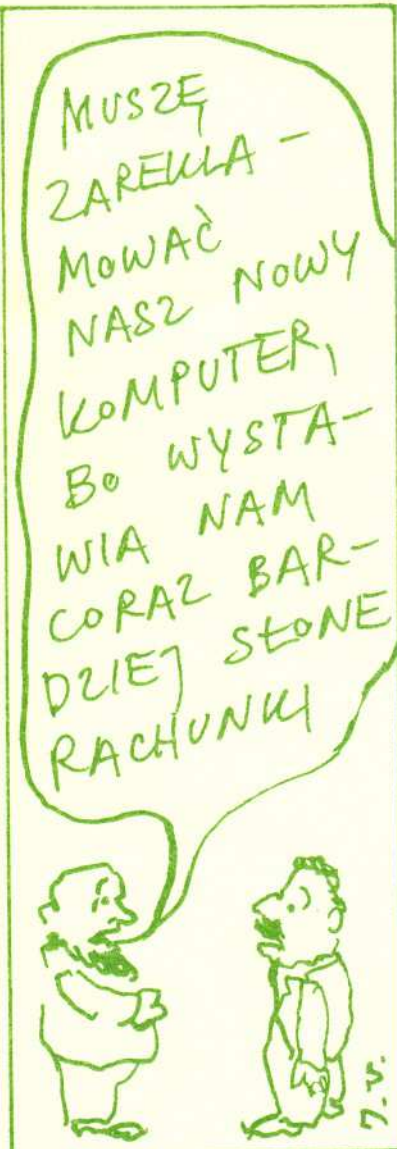 MUSZĘ
ZAREKLA-
MOWAĆ
NASZ NOWY
KOMPUTER,
BO WYSTA-
WIA NAM
CORAZ BAR-
DZIEJ SŁONE
RACHUNKI
J.V.